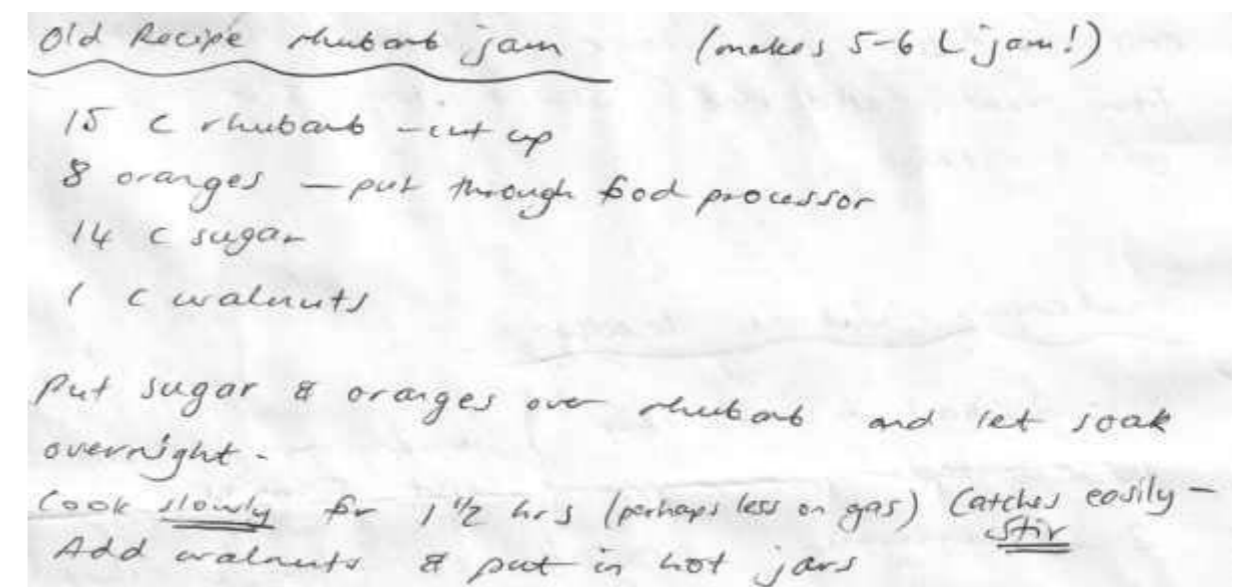 Old Recipe rhubarb jam (makes 5-6 L jam!)
15 c rhubarb - cut up
8 oranges - put through food processor
14 c sugar
1 c walnuts
Put sugar & oranges over rhubarb and let soak
overnight.
Cook slowly for 1 1/2 hrs (perhaps less on gas) Catches easily -
stir
Add walnuts & put in hot jars